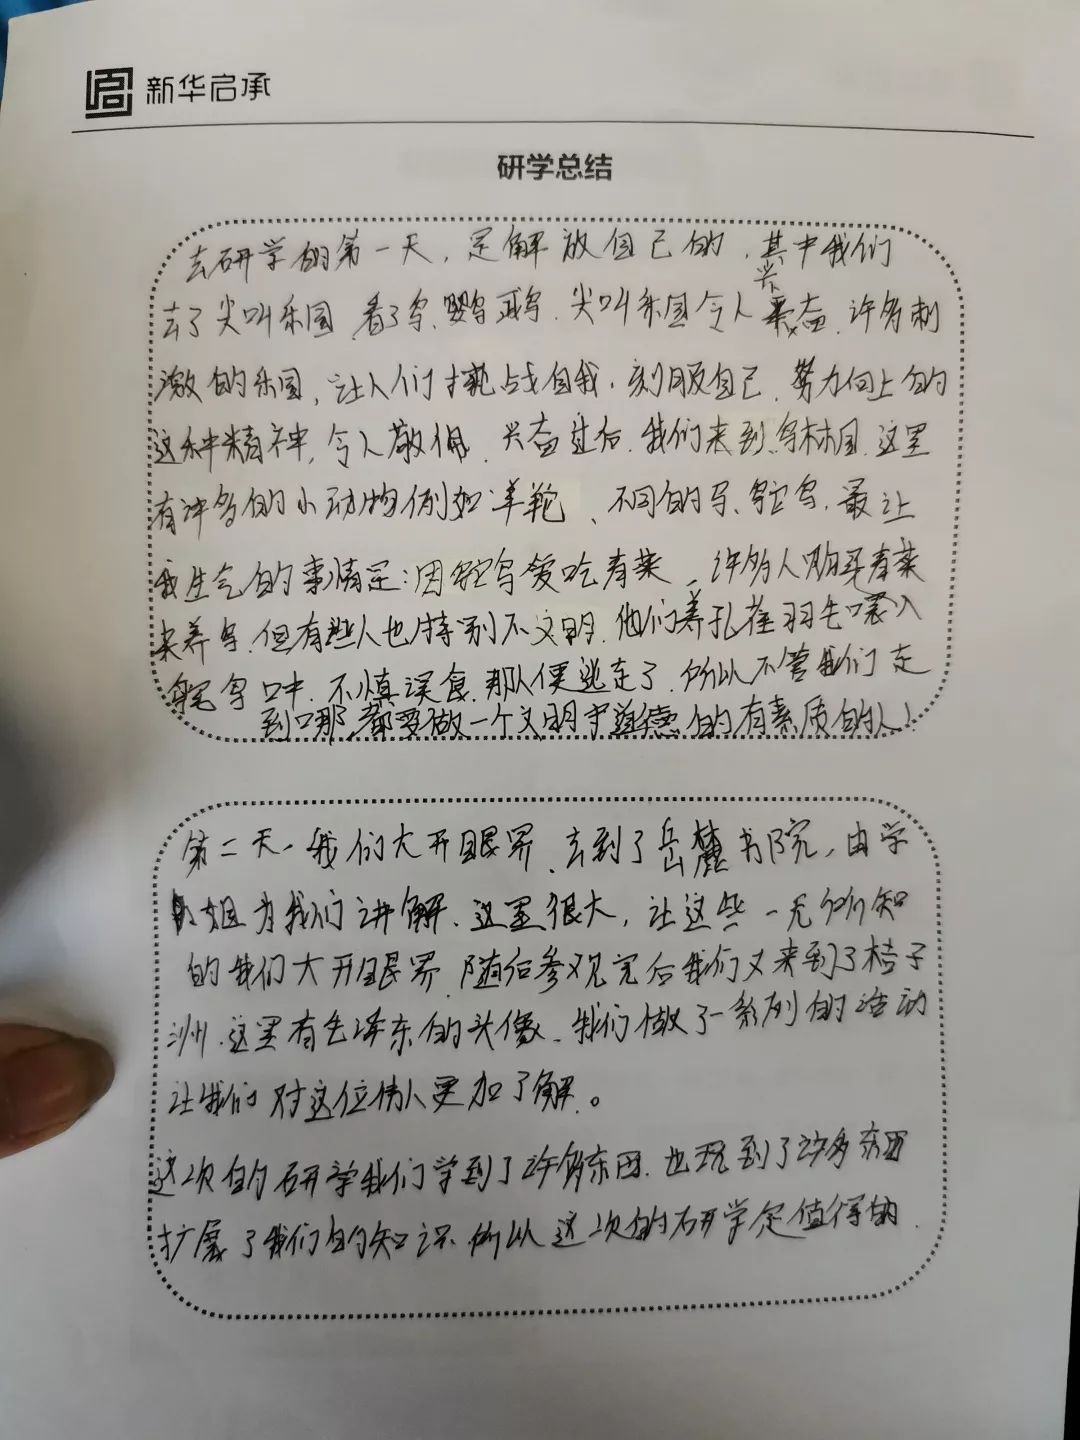 新华启承
研学总结
去研学的第一天，是解放自己的，其中我们
去了尖叫乐园，看了鸟、鹦鸟鹉鸟，尖叫乐园令人兴奋，许多刺
激的乐园，让人们挑战自我，刻服自己，努力向上的
这种精神，令人敬佩，兴奋过后，我们来到鸟林园，这里
有许多的小动物例如羊驼、不同的鸟、鸵鸟，最让
我生气的事情是：因鸵鸟爱吃青菜，许多人购买青菜
来养鸟，但有些人也特别不文明，他们弄孔雀羽毛喂入
鸵鸟口中，不慎误食，那队便逃走了，所以不管我们走
到哪都要做一个文明守道德的有素质的人！
第二天，我们大开眼界，去到了岳麓书院，由学
姐为我们讲解，这里很大，让这些一无所知
的我们大开眼界，随后参观完后我们又来到了桔子
洲，这里有毛泽东的头像，我们做了一系列的活动
让我们对这位伟人更加了解。
这次的研学我们学到了许多东西，也玩到了许多东西
扩展了我们的知识，所以这次的研学是值得的．